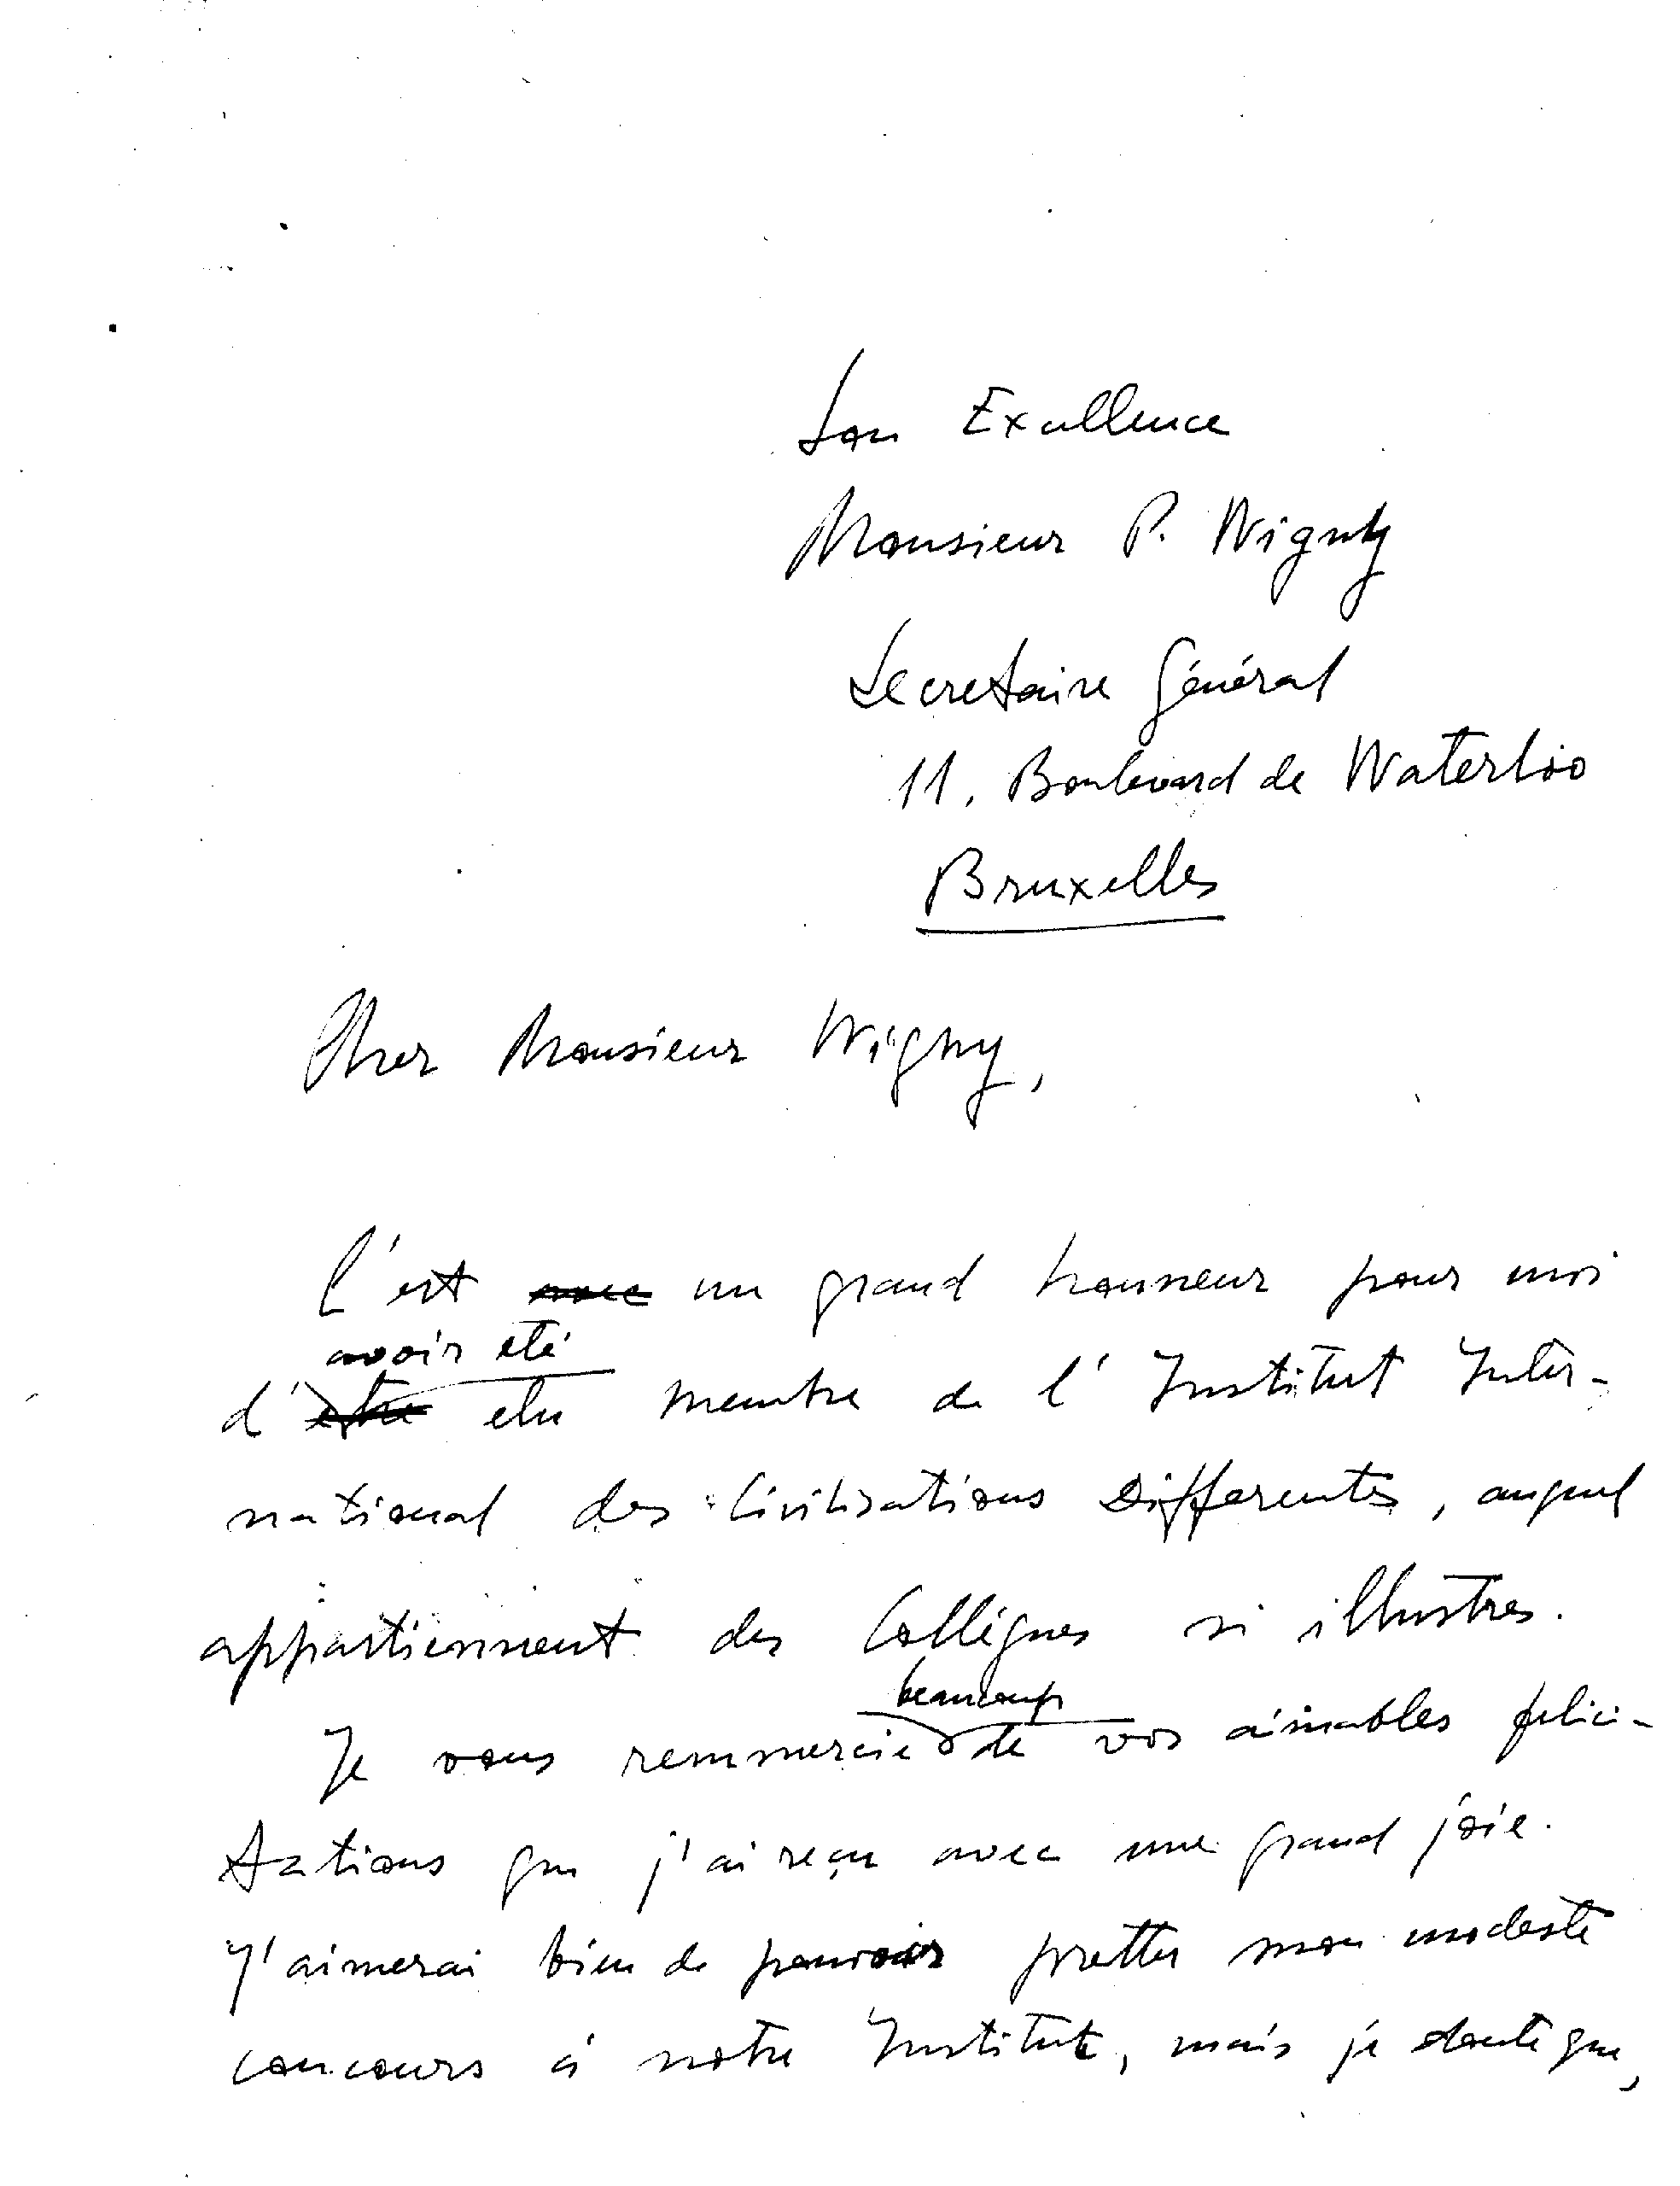 Son Excellence
Monsieur P. Wigny
Secretaire Général
11, Boulevard de Waterloo
Bruxelles
Cher Monsieur Wigny,
C'est avec un grand honneur pour moi
avoir été
d'être elu membre de l'Institut Inter-
national des Civilisations Differentes, auquel
appartiennent des Collégues si illustres.
beaucoup
Je vous remmercie de vos aimables felici-
tations que j'ai reçu avec une grand joie.
J'aimerai bien de pouvoir pretter mon modeste
concours à notre Institut, mais je doute que,